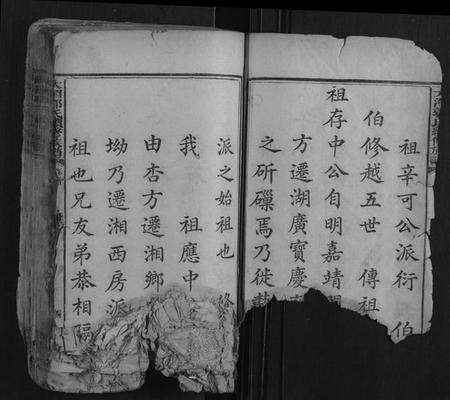 祖辛可公派衍 伯
伯修越五世 傳祖
祖存中公自明嘉靖
方遷湖廣寶慶
之斫磥焉乃徙
派之始祖也
我 祖應中
由杏方遷湘鄉
坳乃遷湘西房派
祖也兄友弟恭相隔